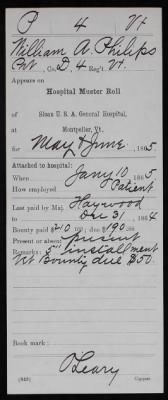 P 4 Vt
William A. Philips
Pvt, Co. D, 4 Reg't Vt.
Appears on
Hospital Muster Roll
of
Sloan U. S. A. General Hospital,
Montpelier, Vt.,
for May & June, 1865
Attached to hospital:
When Jany 10, 1865
How employed Patient
Last paid by Maj. Haywood
to Dec 31, 1864
Bounty paid $210 100; due $190 100
Present or absent present
Remarks: 5" installment
Vt Bounty due $50
Book mark:
O'Leary
(343) Copyist.